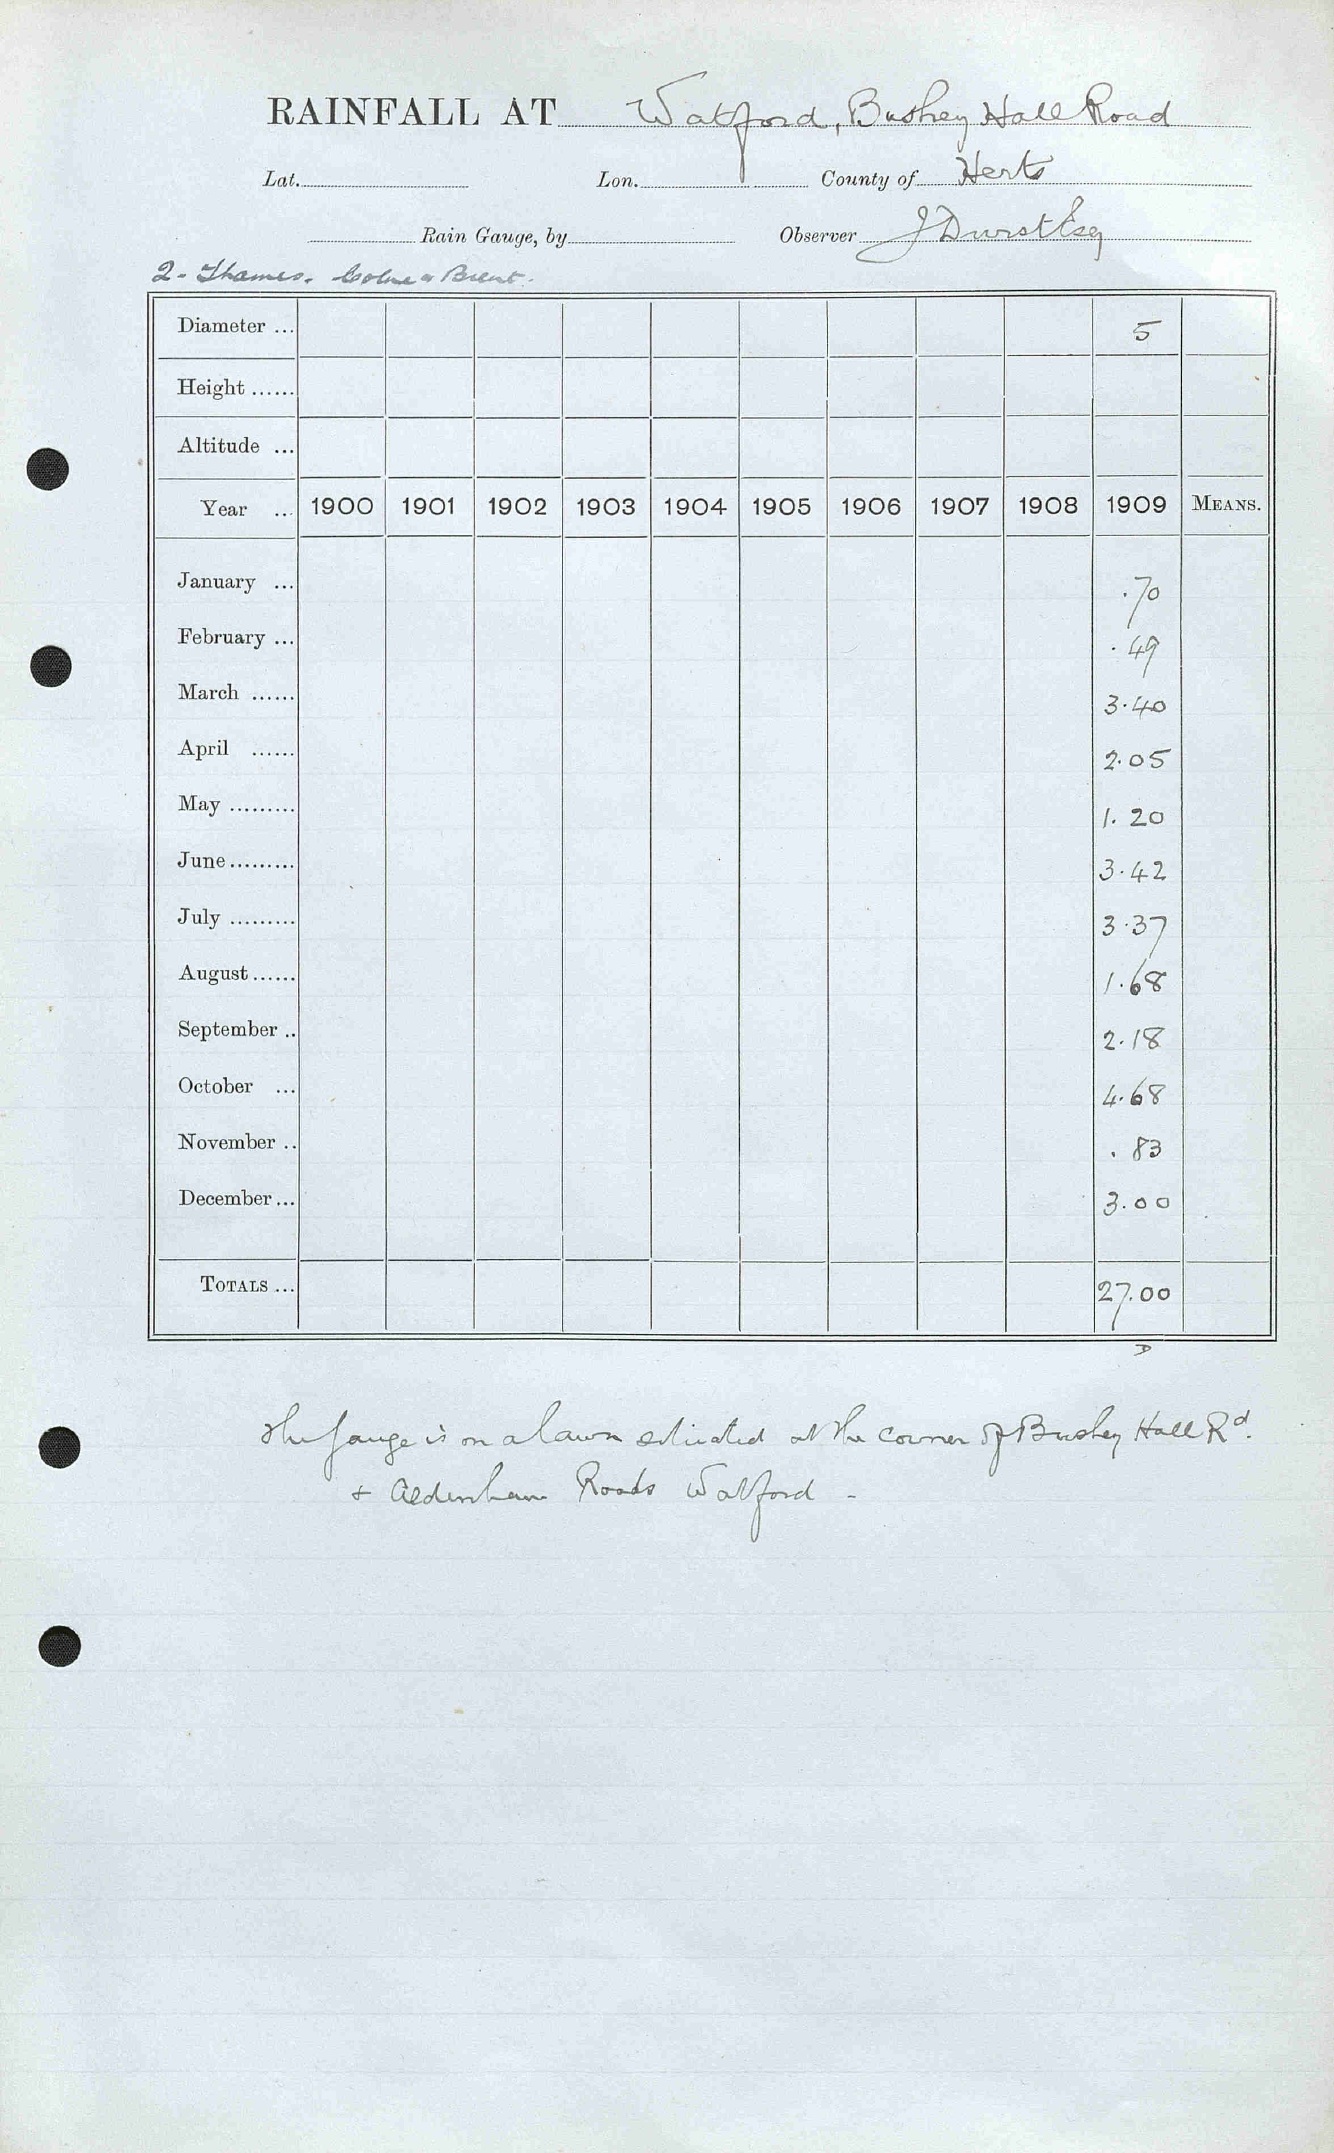 RAINFALL AT Watford, Bushey Hall Road
Lat. Lon. County of Herts
Rain Gauge, by Observer J Durst Esq
2 - Thames. Colne & Brent.
Diameter ... 5
Height ......
Altitude ...
Year ... 1900 1901 1902 1903 1904 1905 1906 1907 1908 1909 MEANS.
January ... .70
February ... .49
March ...... 3.40
April ...... 2.05
May ......... 1.20
June ......... 3.42
July ......... 3.37
August ...... 1.68
September .. 2.18
October ... 4.68
November .. .83
December ... 3.00
TOTALS ... 27.00
D
The gauge is on a lawn situated at the corner of Bushey Hall Rd.
& Aldenham Roads Watford -